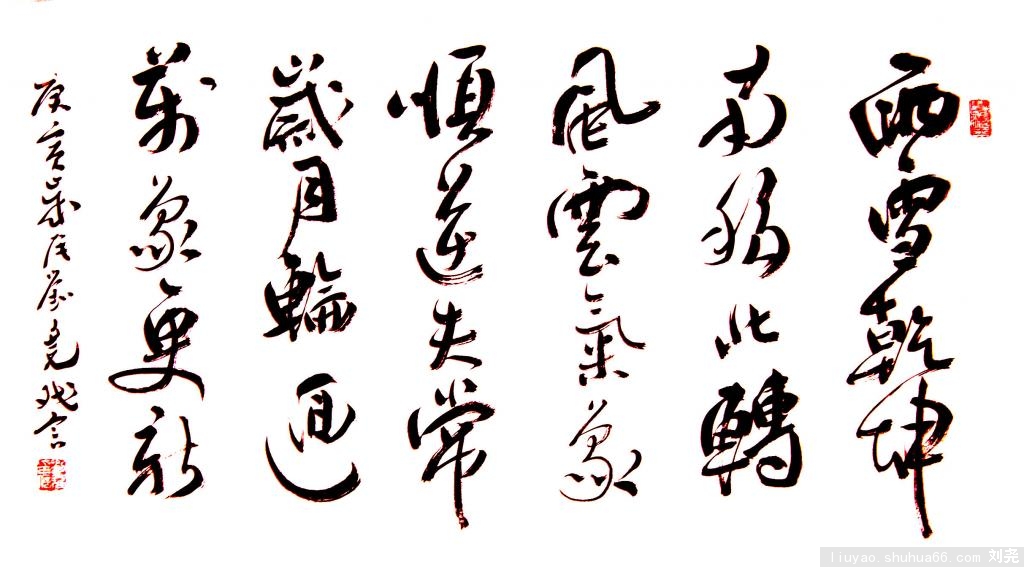 雪乾坤
南移北轉
風雲氣象
順逆失常
歲月輪迴
萬象更新
庚寅歲尾劉堯戏言
liuyao.shuhua66.com 刘尧